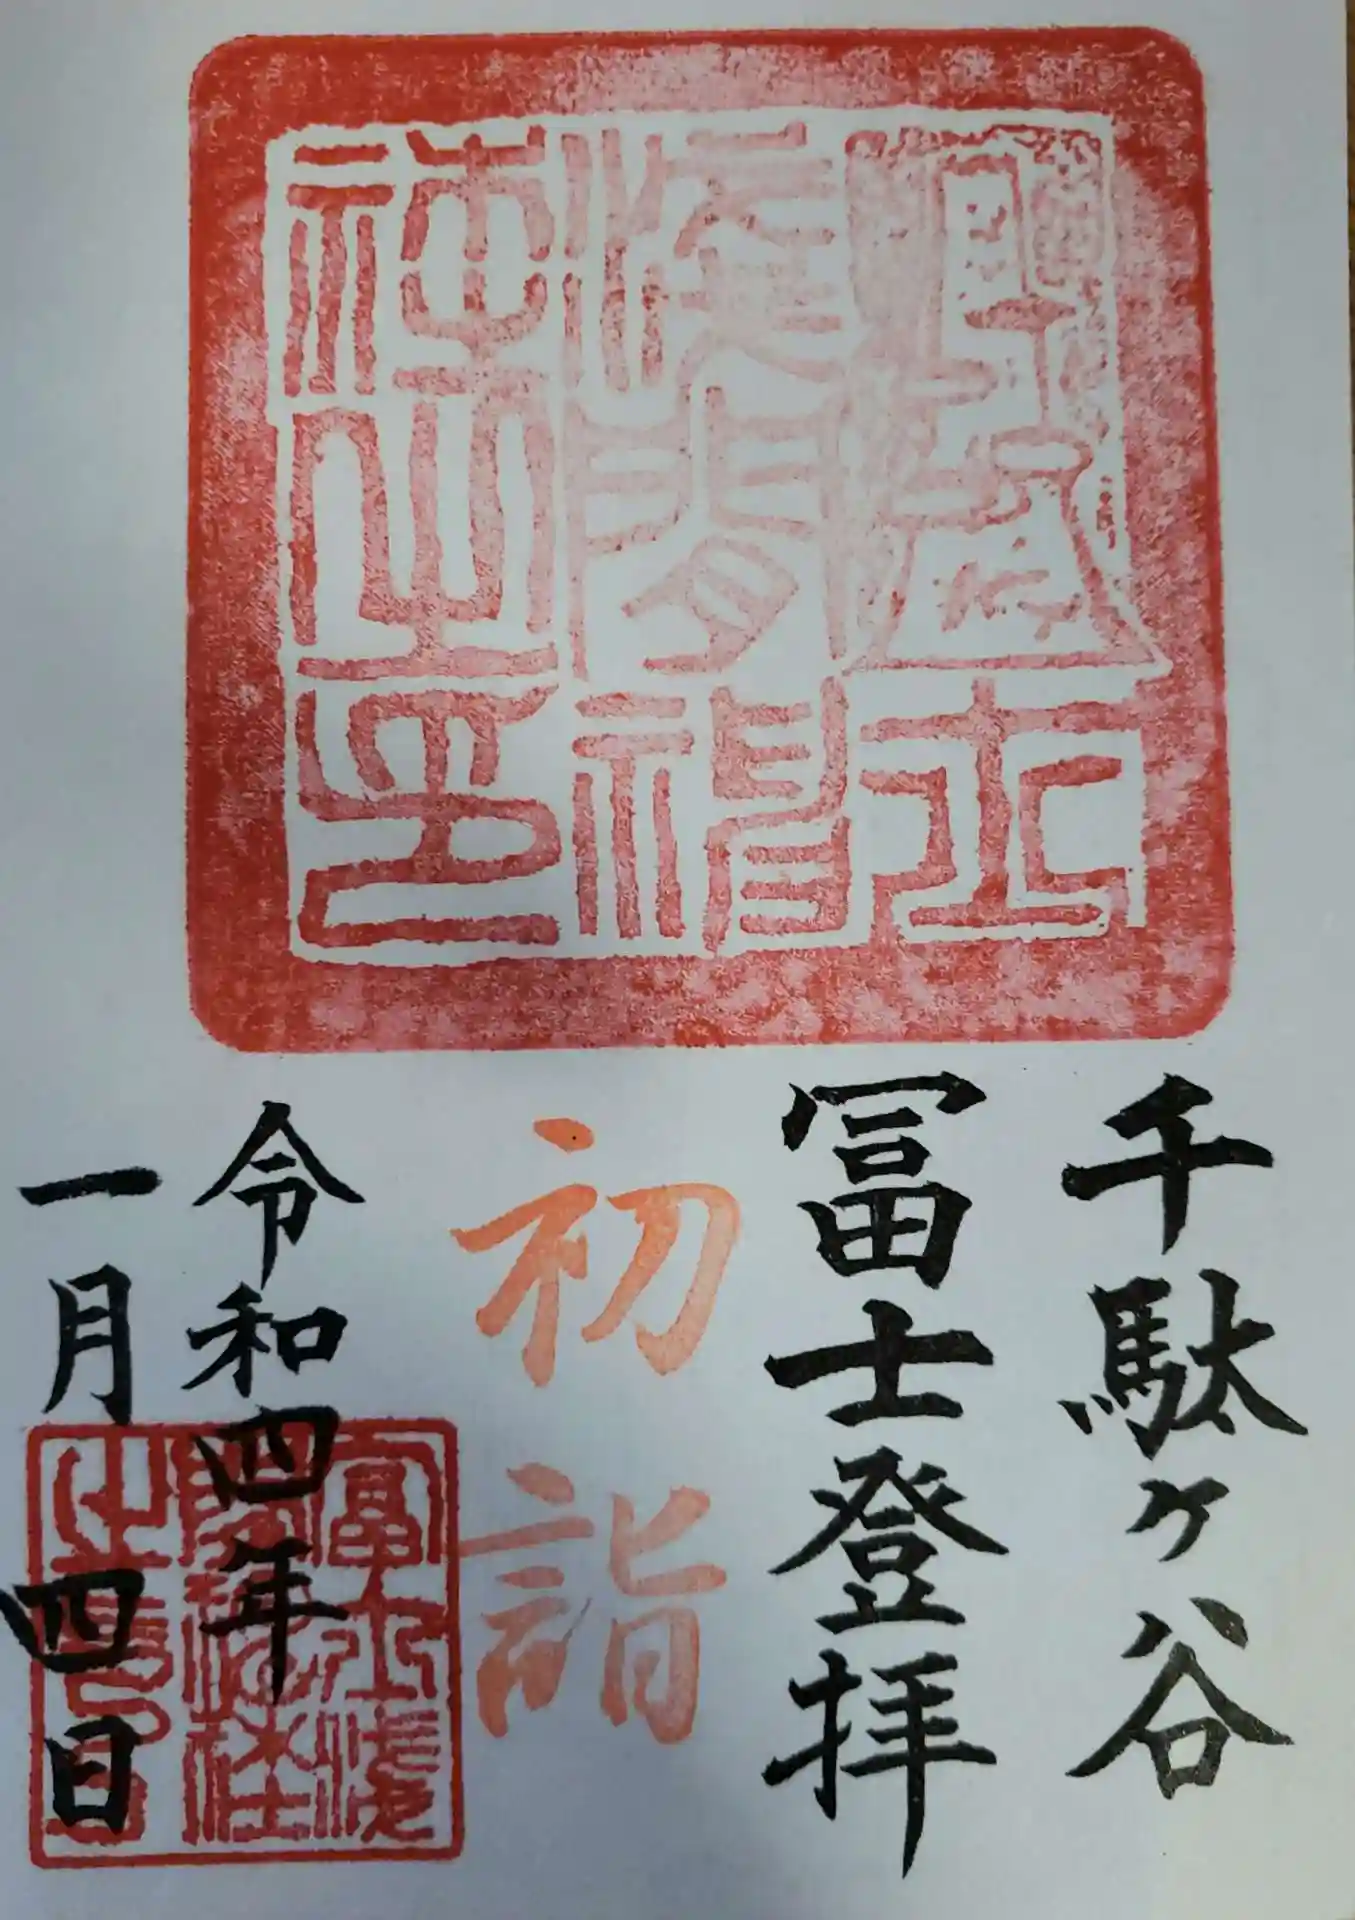 千駄ヶ谷
冨士登拝
初詣
令和四年
一月四日
富士淺
間神社
之印